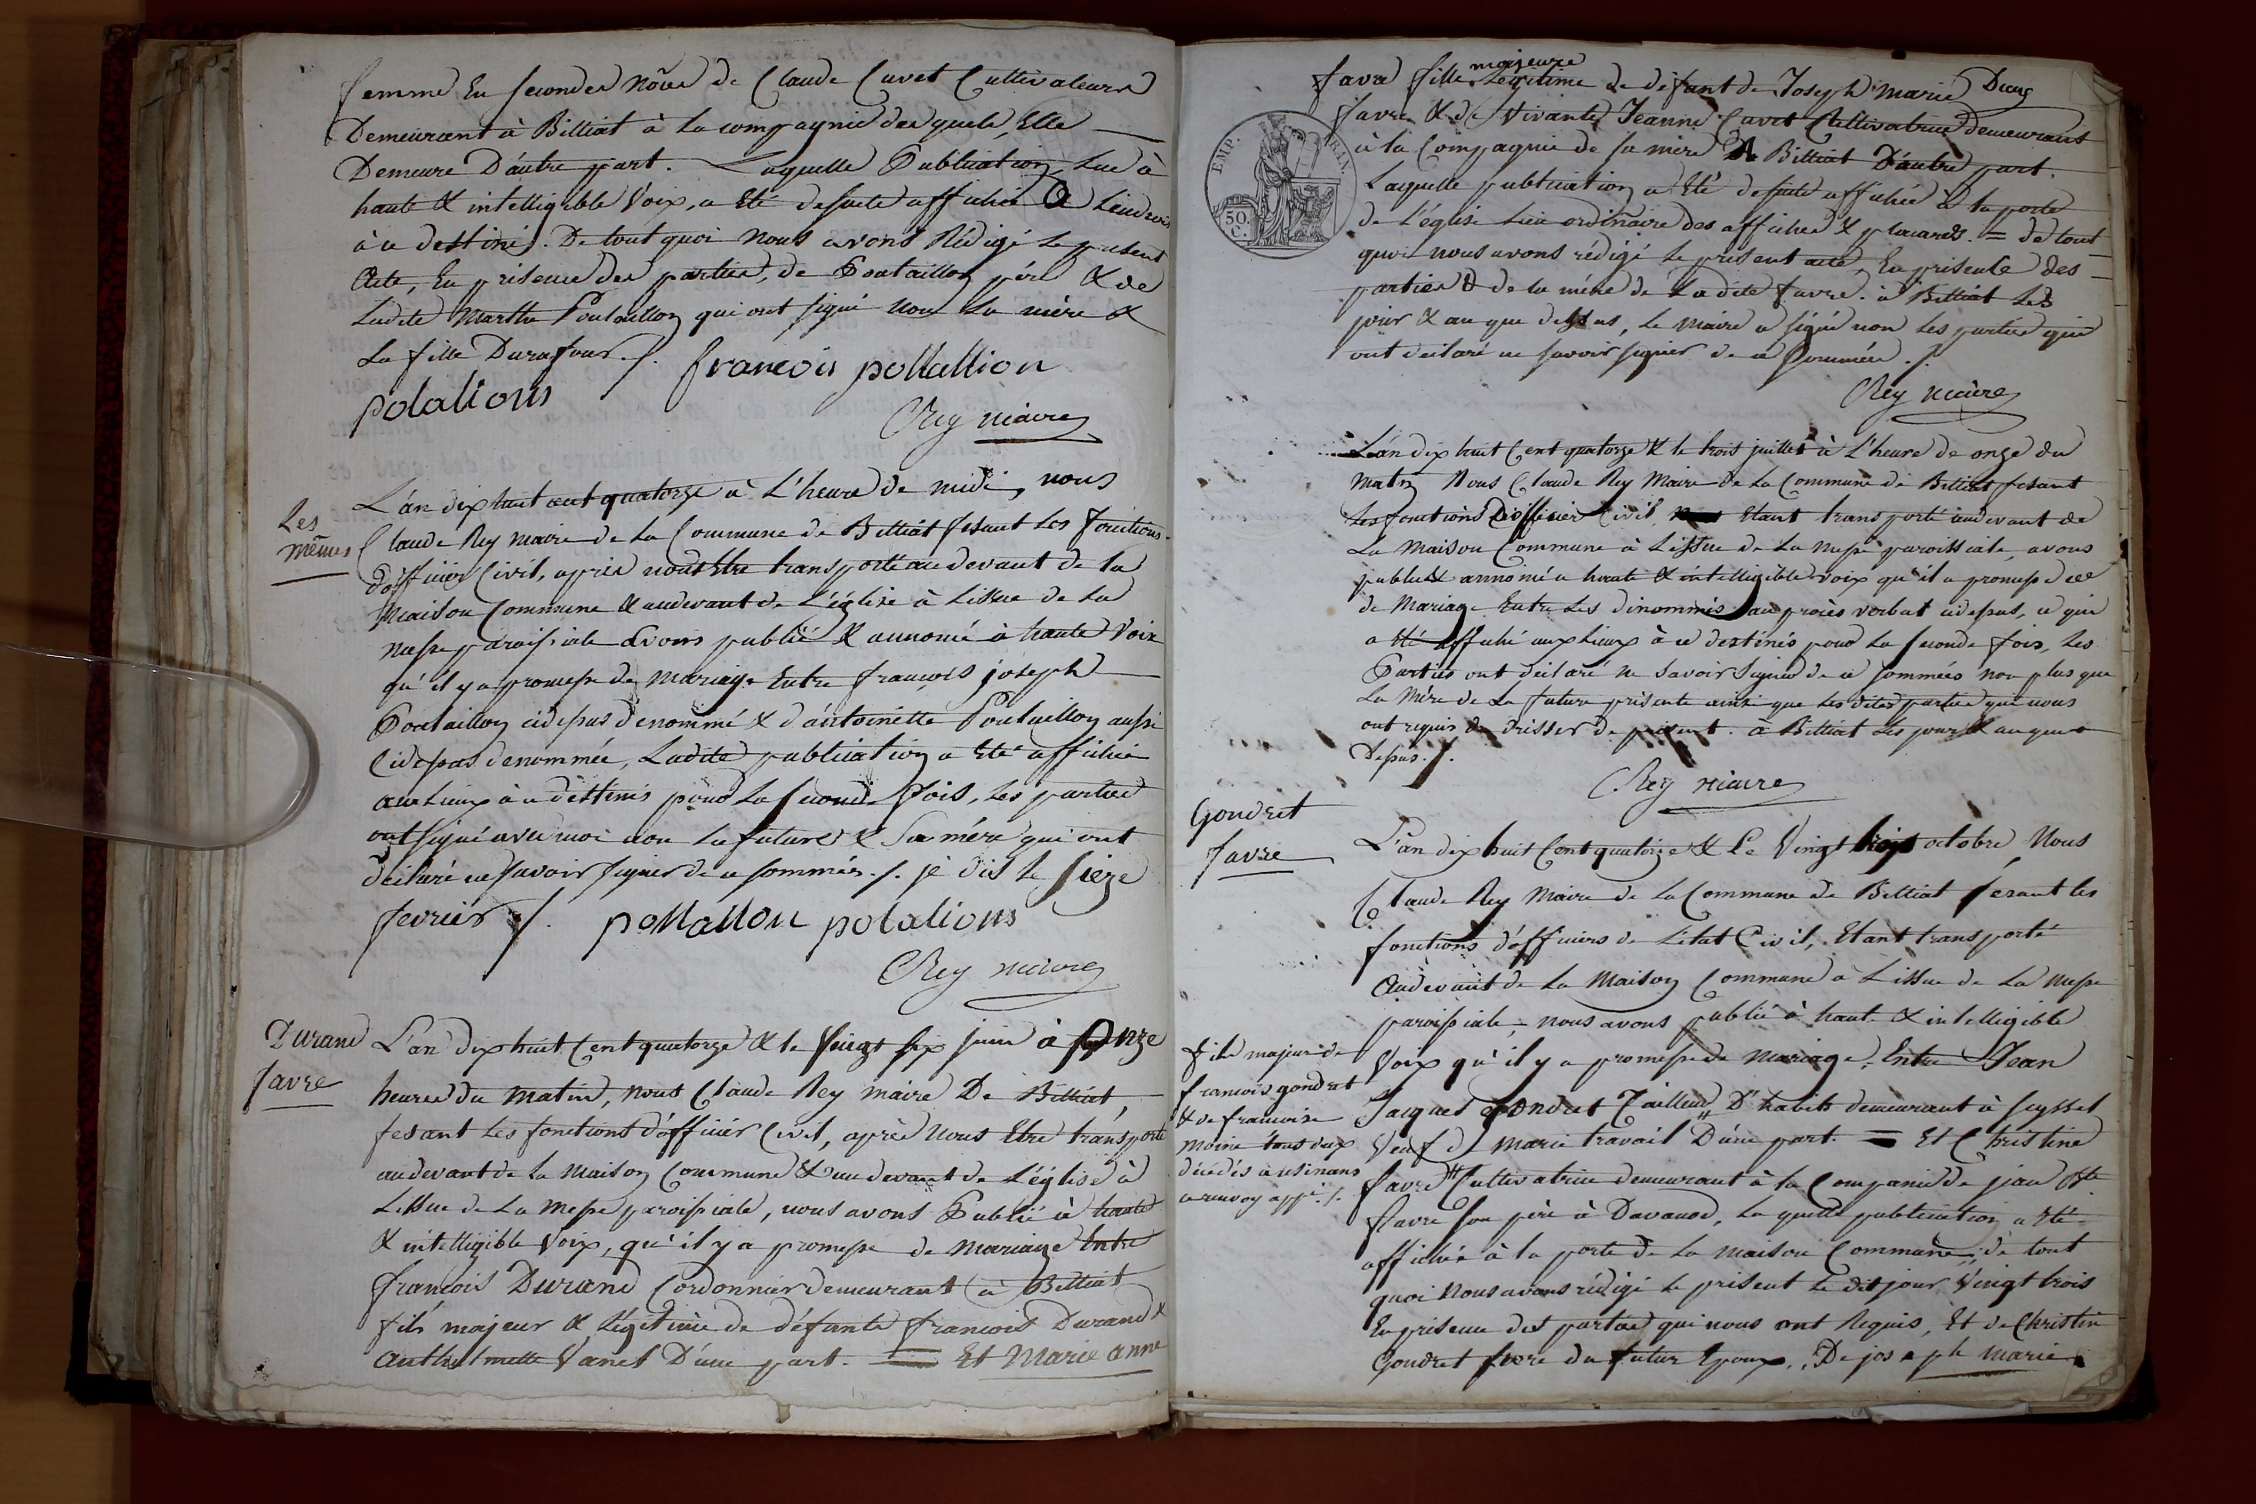 femme En secondes nôces de Claude Cuvet Cultivateurs
Demeurant à Billiat à la compagnie desquels Elle
Demeure D'autre part. Laquelle Publication lue à
haute & intelligible Voix, a Eté desuite affichée à Lendroit
à ce destiné. De tout quoi nous avons Rédigé le présent
acte, En présence des parties, de Poutaillon père & de
Ladite Marthe Poutaillon qui ont signé non La mère &
La fille Durafour ./.
françois pollallion
polalions
C Rey maire
Les
mêmes
L'an dix huit cent quatorze à L'heure de midi, nous
Claude Rey maire de la Commune de Billiat fesant Les fonctions
d'officier Civil, après nous Etre transporté au devant de la
Maison Commune & audevant de L'église à Lissue de La
messe paroissiale avons publié & annoncé à haute Voix
qu'il y a promesse de mariage Entre françois joseph
Poutaillon cidessus dénommé & d'antoinette Poutaillon aussi
Cidessus dénommée, Ladite publication a Eté affichée
aux Lieux à ce déstinés pour La seconde fois, Les parties
ont signé avec moi non La future & Sa mère qui ont
déclaré ne savoir signer de ce sommés ./. je dis le sieze
fevrier ./.
pollallon polalions
C Rey maire
Durand
favre
L'an dix huit Cent quatorze & le Vingt six juin à Onze
heures du matin, nous Claude Rey maire De Billiat,
fesant Les fonctions d'officier Civil, après nous Etre transporté
audevant de la Maison Commune & au devant de L'église à
Lissue de La Messe paroissiale, nous avons Publié à haute
& intelligible Voix, qu'il y a promesse de Mariage Entre
françois Durand Cordonnier demeurant à Billiat
fils majeur & Légitime de défunts françois Durand &
anthelmette Vanel D'une part. = Et Marie anne
favre fille majeure Légitime de défunt de Joseph Marie
favre & de Vivante Jeanne Cuvet Cultivatrice demeurant
à la Compagnie de sa mère A Billiat D'autre part.
Laquelle publication a Eté desuite affichée à la porte
de L'église Lieu ordinaire des affiches & placards. = de tout
quoi nous avons rédigé le présent acte, En présence des
parties & de la mère de Ladite favre. à Billiat Les
jour & an que dessus, Le Maire a signé non Les parties qui
ont déclaré ne savoir signer de ce sommées ./.
EMP. FRAN.
50. C.
C Rey maire
L'an dix huit Cent quatorze & le trois juillet à L'heure de onze du
Matin Nous Claude Rey Maire de La Commune de Billiat fesant
Les fonctions D'officier Civil Etant transporté audevant de
La Maison Commune à Lissue de La messe paroissiale, avons
publié & annoncé à haute & intelligible voix qu'il a promesse
de Mariage Entre Les dénommés au procès verbal cidessus, ce qui
a été affiché aux Lieux à ce destinés pour La seconde fois, Les
Parties ont déclaré ne Savoir Signer de ce sommées non plus que
La Mère de La future présente ainsi que Les dites parties qui nous
ont requis de drésser Le présent. à Billiat Les jour & an que
Dessus ./.
C. Rey maire
Gondret
favre
L'an dix huit Cent quatorze & Le Vingt trois octobre, Nous
Claude Rey Maire de La Commune de Billiat fesant les
fonctions d'officiers de L'état Civil, Etant transporté
audevant de La Maison Commune à Lissue de La Messe
paroissiale, nous avons publié à haute & intelligible
Voix qu'il y a promesse de Mariage. Entre Jean
Jacques gondret Tailleur D'habits demeurant à Seyssel
Veuf de Marie travail D'une part. = Et Christine
favre Cultivatrice demeurant à La Companie de jean Bte
favre son père à Davanod, La quelle publication a Eté
affichée à la porte de La Maison Commune, de tout
quoi Nous avons rédigé le présent Le dit jour Vingt trois
En présence des parties qui nous ont Requis, Et de Christin
Gondret frere du futur Epoux, De joseph Marie
fils majeur de
francois gondret
& de francoise
Moine tous deux
décédés à usinans